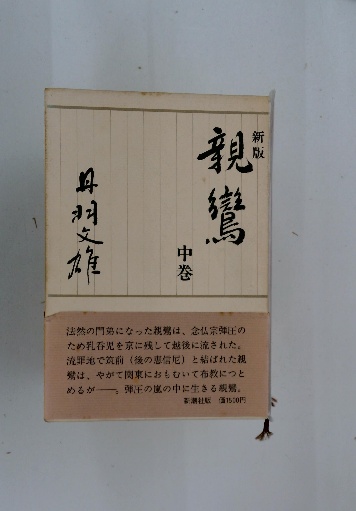 新版
親鸞
中巻
丹羽文雄
法然の門弟になった親鸞は、念仏宗弾圧の
ため乳呑児を京に残して越後に流された。
流罪地で筑前（後の恵信尼）と結ばれた親
鸞は、やがて関東におもむいて布教につと
めるが──。弾圧の嵐の中に生きる親鸞。
新潮社版 価1500円